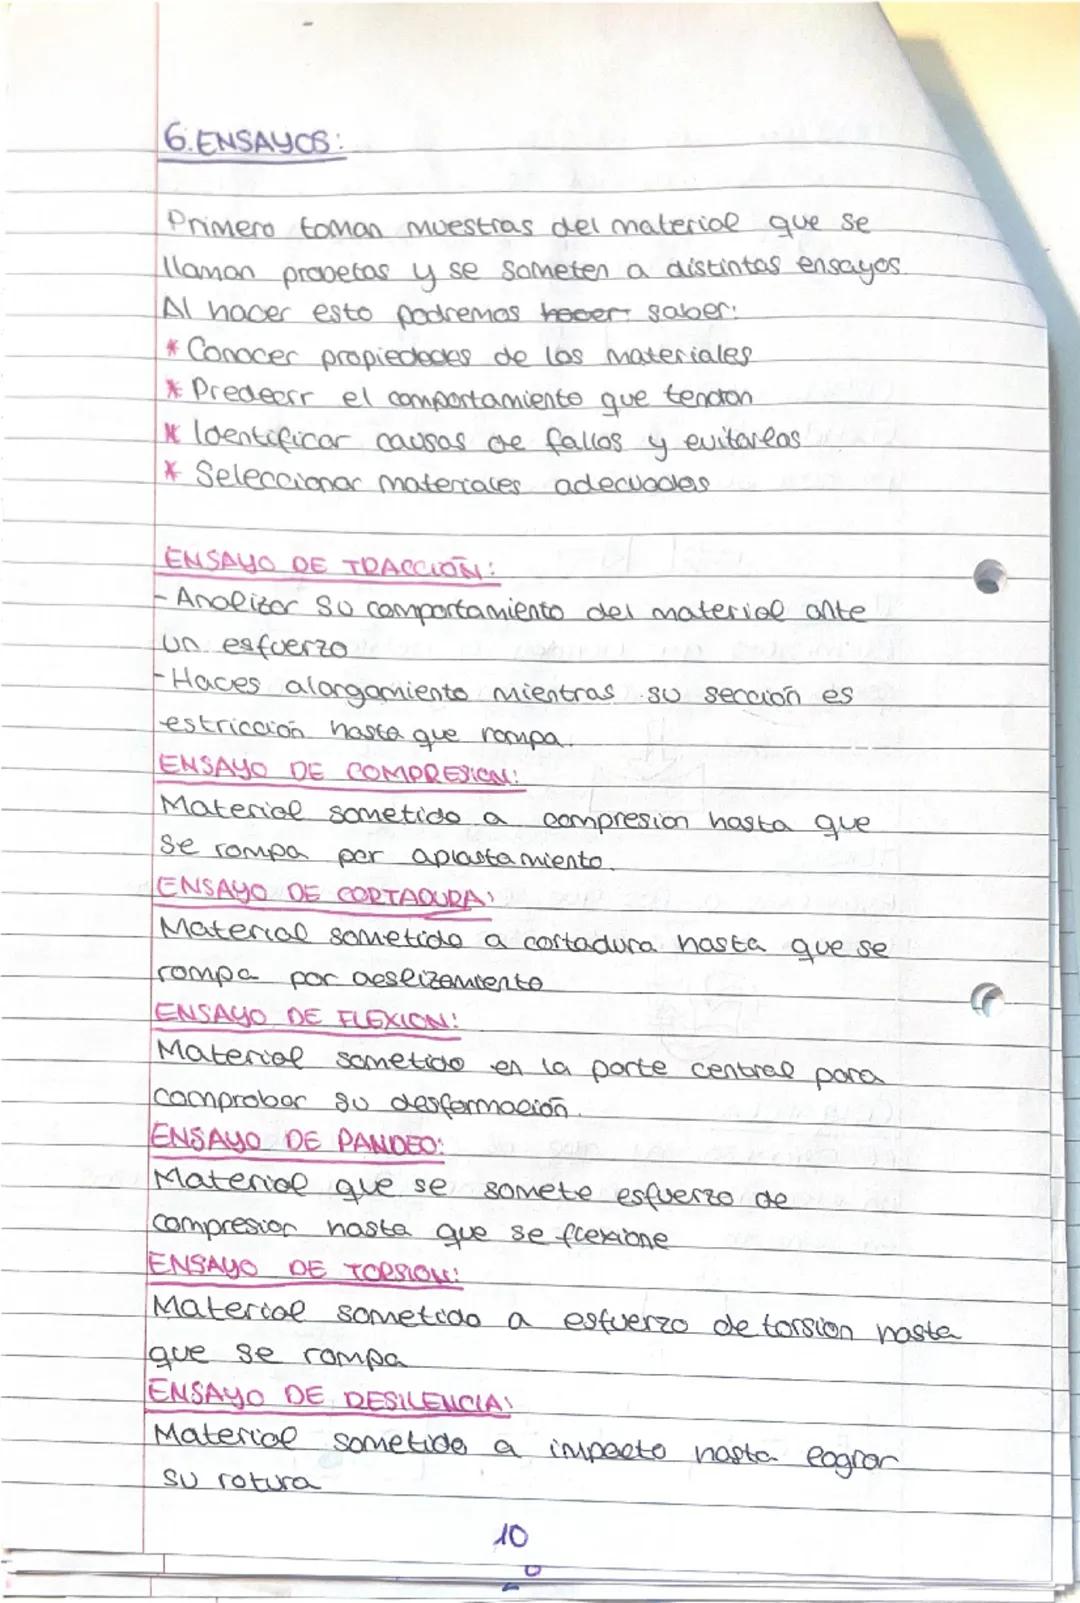 6. ENSAYOS:
Primero toman muestras del material que se
llaman probetas y se someten a distintos ensayos.
Al hacer esto podremos hacer saber:
* Conocer propiedades de los materiales
* Predecir el comportamiento que tendran
* Identificar causas de fallos y evitarlas
* Seleccionar materiales adecuados
ENSAYO DE TRACCIÓN:
- Analizar su comportamiento del material ante
un esfuerzo
- Haces alargamiento mientras su sección es
estricción hasta que rompa.
ENSAYO DE COMPRESION:
Material sometido a compresion hasta que
se rompa por aplastamiento.
ENSAYO DE CORTADURA:
Material sometido a cortadura hasta que se
rompa por deslizamiento
ENSAYO DE FLEXION:
Material sometido en la parte central para
comprobar su desformación.
ENSAYO DE PANDEO:
Material que se somete esfuerzo de
compresion hasta que se flexione
ENSAYO DE TORSION:
Material sometido a esfuerzo de torsion hasta
que se rompa
ENSAYO DE RESILENCIA:
Material sometido a impacto hasta lograr
su rotura
10